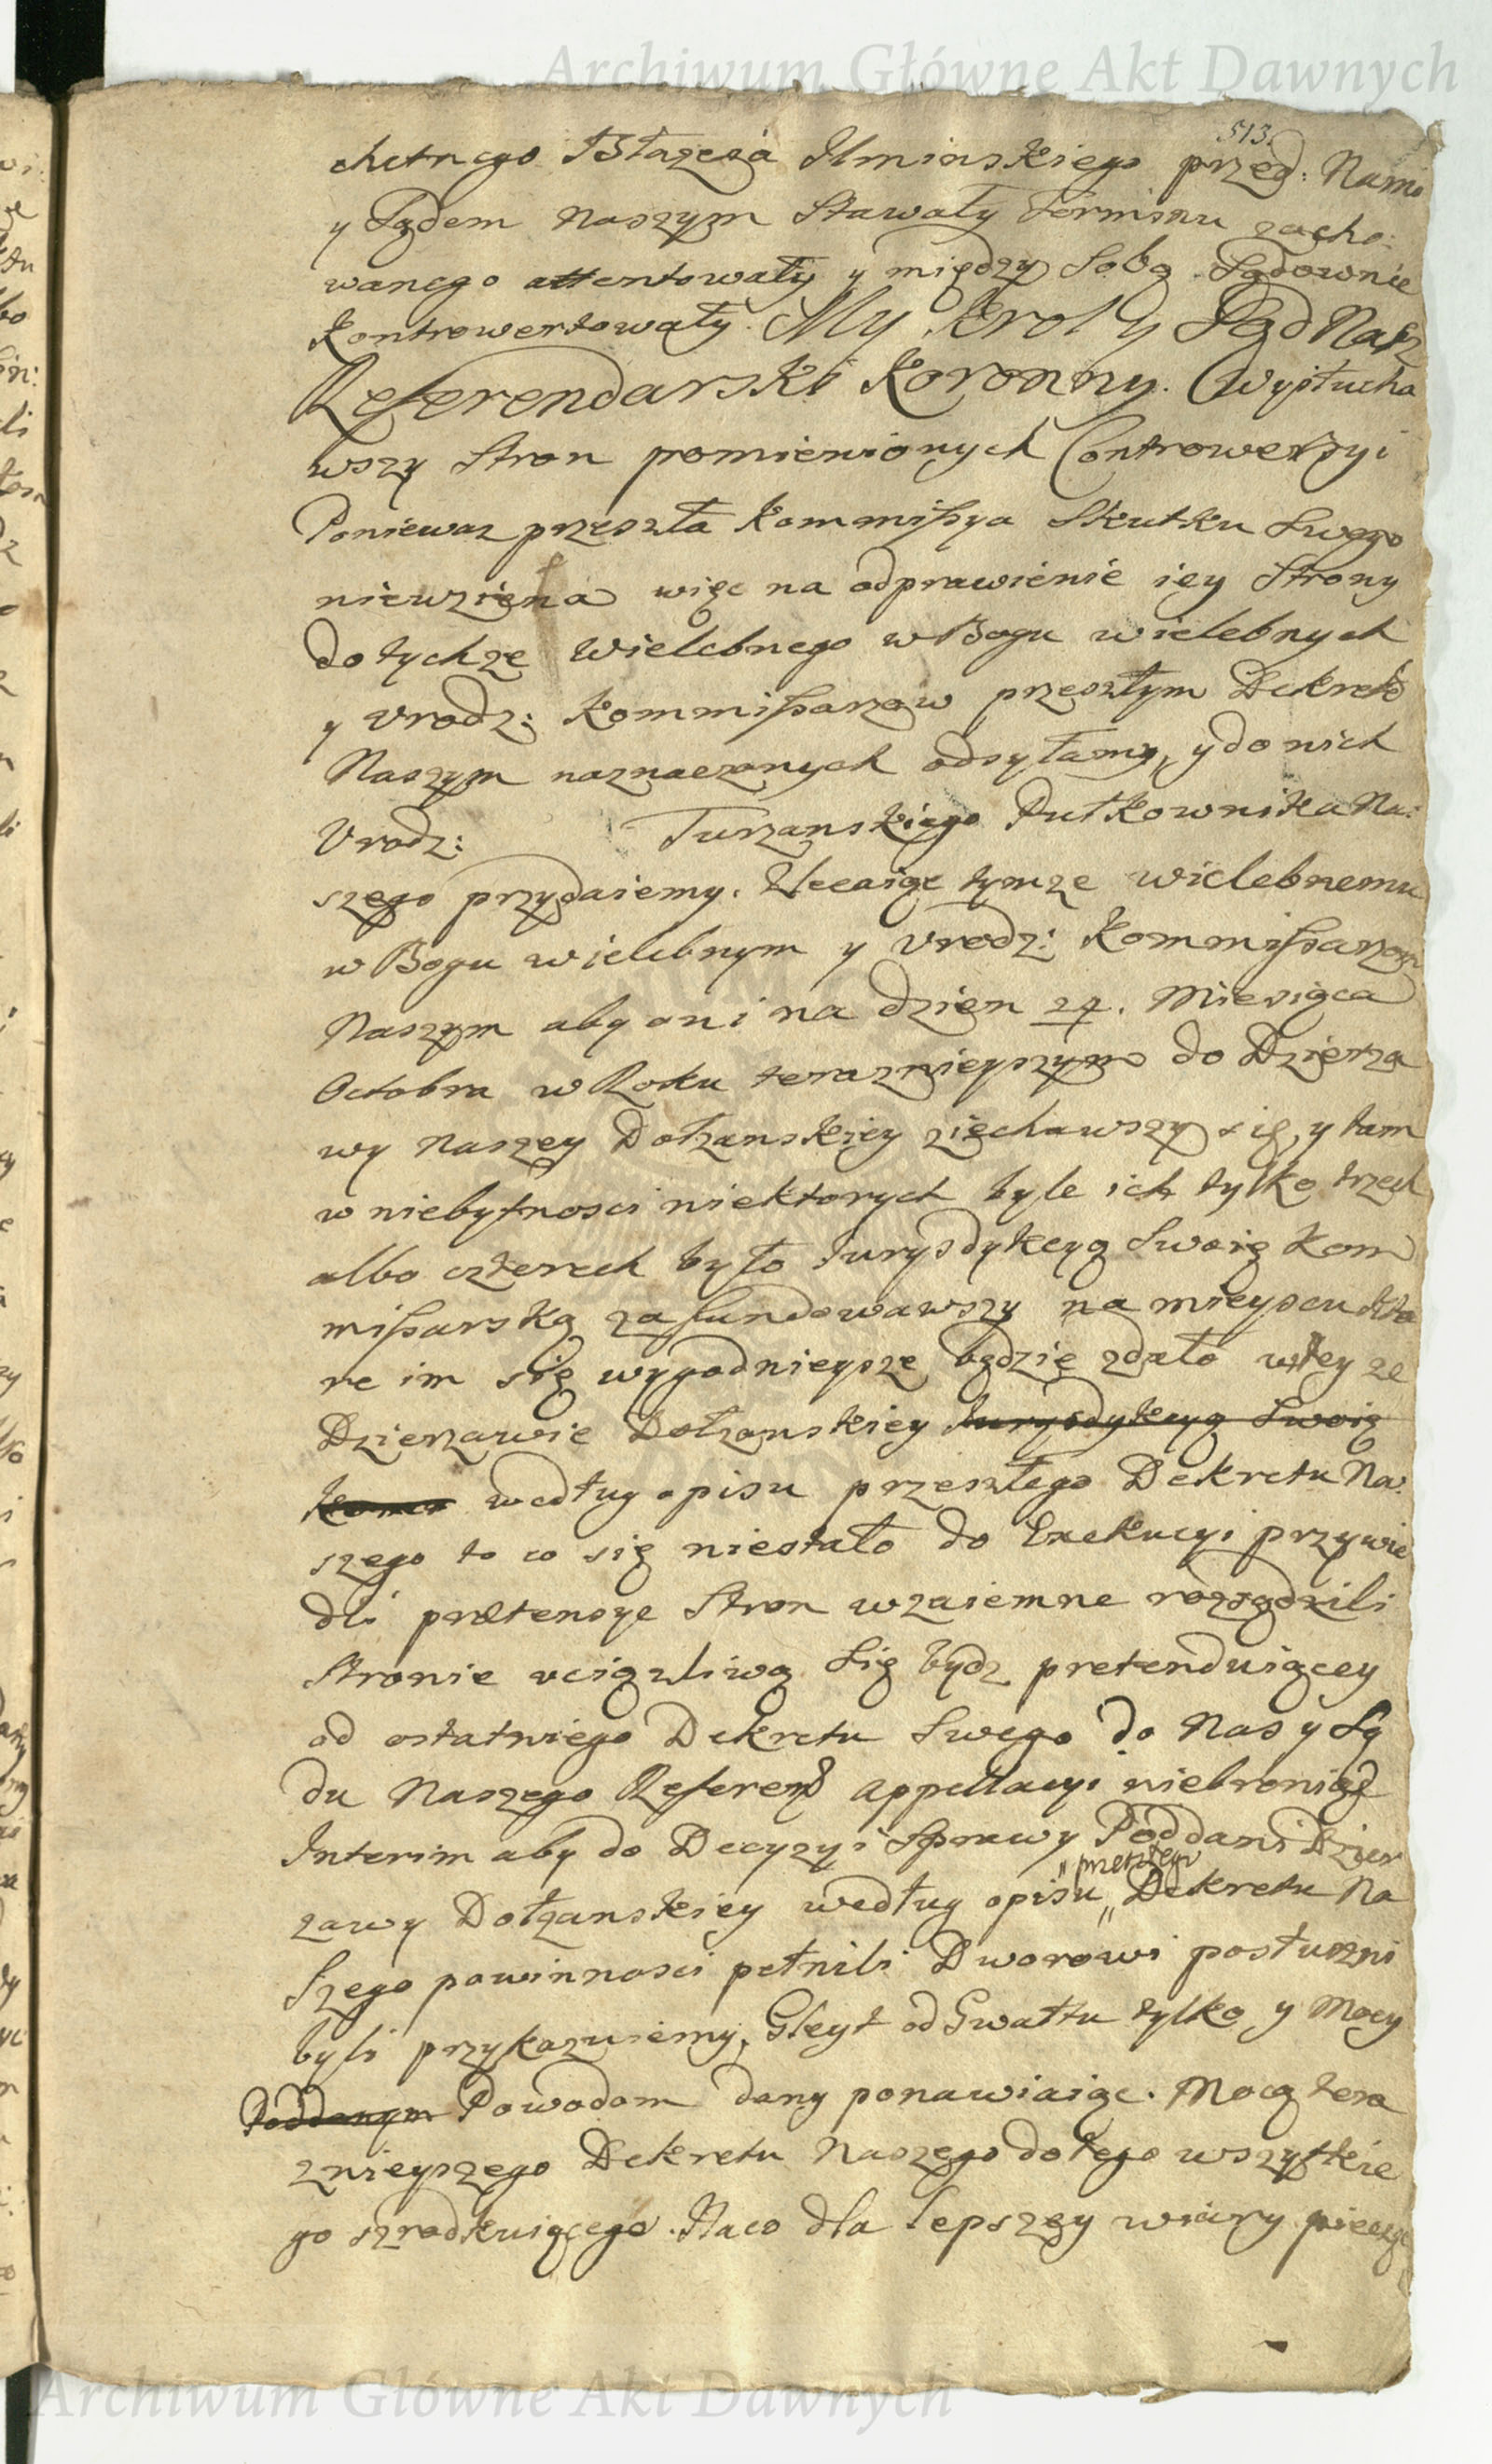 Archiwum Główne Akt Dawnych
513.
chetnego Błazeia Ilminskiego przed: Nami
y Sądem Naszym Stawały Terminu zacho:
wanego attentowały y między Sobą Sądownie
Kontrowertowały. My Krol y Sąd Nasz
Referendarski Koronny. Wysłucha
wszy Stron pomienionych Controwersyi
Poniewaz przeszła Kommissya Skutku Swego
niewzięła więc na odprawienie iey Strony
do tychze Wielebnego w Bogu wielebnych
y Urodz: Kommissarzow przeszłym Dekretē
Naszym naznaczonych odsyłamy, y do nich
Urodz: Turzanskiego Pułkownika Na:
szego przydaiemy. Zlecaiąc tymze wielebnemu
w Bogu wielebnym y Urodz: Kommissarzom
Naszym aby oni na dzien 24. Miesiąca
Octobra w Roku teraznieyszym do Dzierza
wy Naszey Dołzanskiey ziechawszy się, y tam
w niebytnosci niektorych byle ich tylko trzech
albo czterech było Iurysdykcyą Swoię Kom
missarską zafundowawszy na mieyscu kto
re im się wygodnieysze będzie zdało w tey ze
Dzierzawie Dołzanskiey Iurysdykcyą Swoię
Kom według opisu przeszłego Dekretu Na:
szego to co się niestało do Exekucyi przywie
dli prætensye Stron wzaiemne rozsądzili
Stronie uciązliwą Się bydz pretenduiącey
od ostatniego Dekretu Swego do Nas y Są
du Naszego Referend appellacyi niebroniąc
Interim aby do Decyzyi Sprawy Poddani Dzier
przeszłego
zawy Dołzanskiey według opisu „ Dekretu Na
Szego powinnosci pełnili Dworowi posłuszni
byli przykazuiemy, Gleyt od Gwałtu tylko y Mocy
Poddanym Powodom dany ponawiaiąc. Mocą tera
znieyszego Dekretu Naszego do tego wszytkie
go szrodkuiącego. Na co dla lepszey wiary pieczęć
Archiwum Główne Akt Dawnych